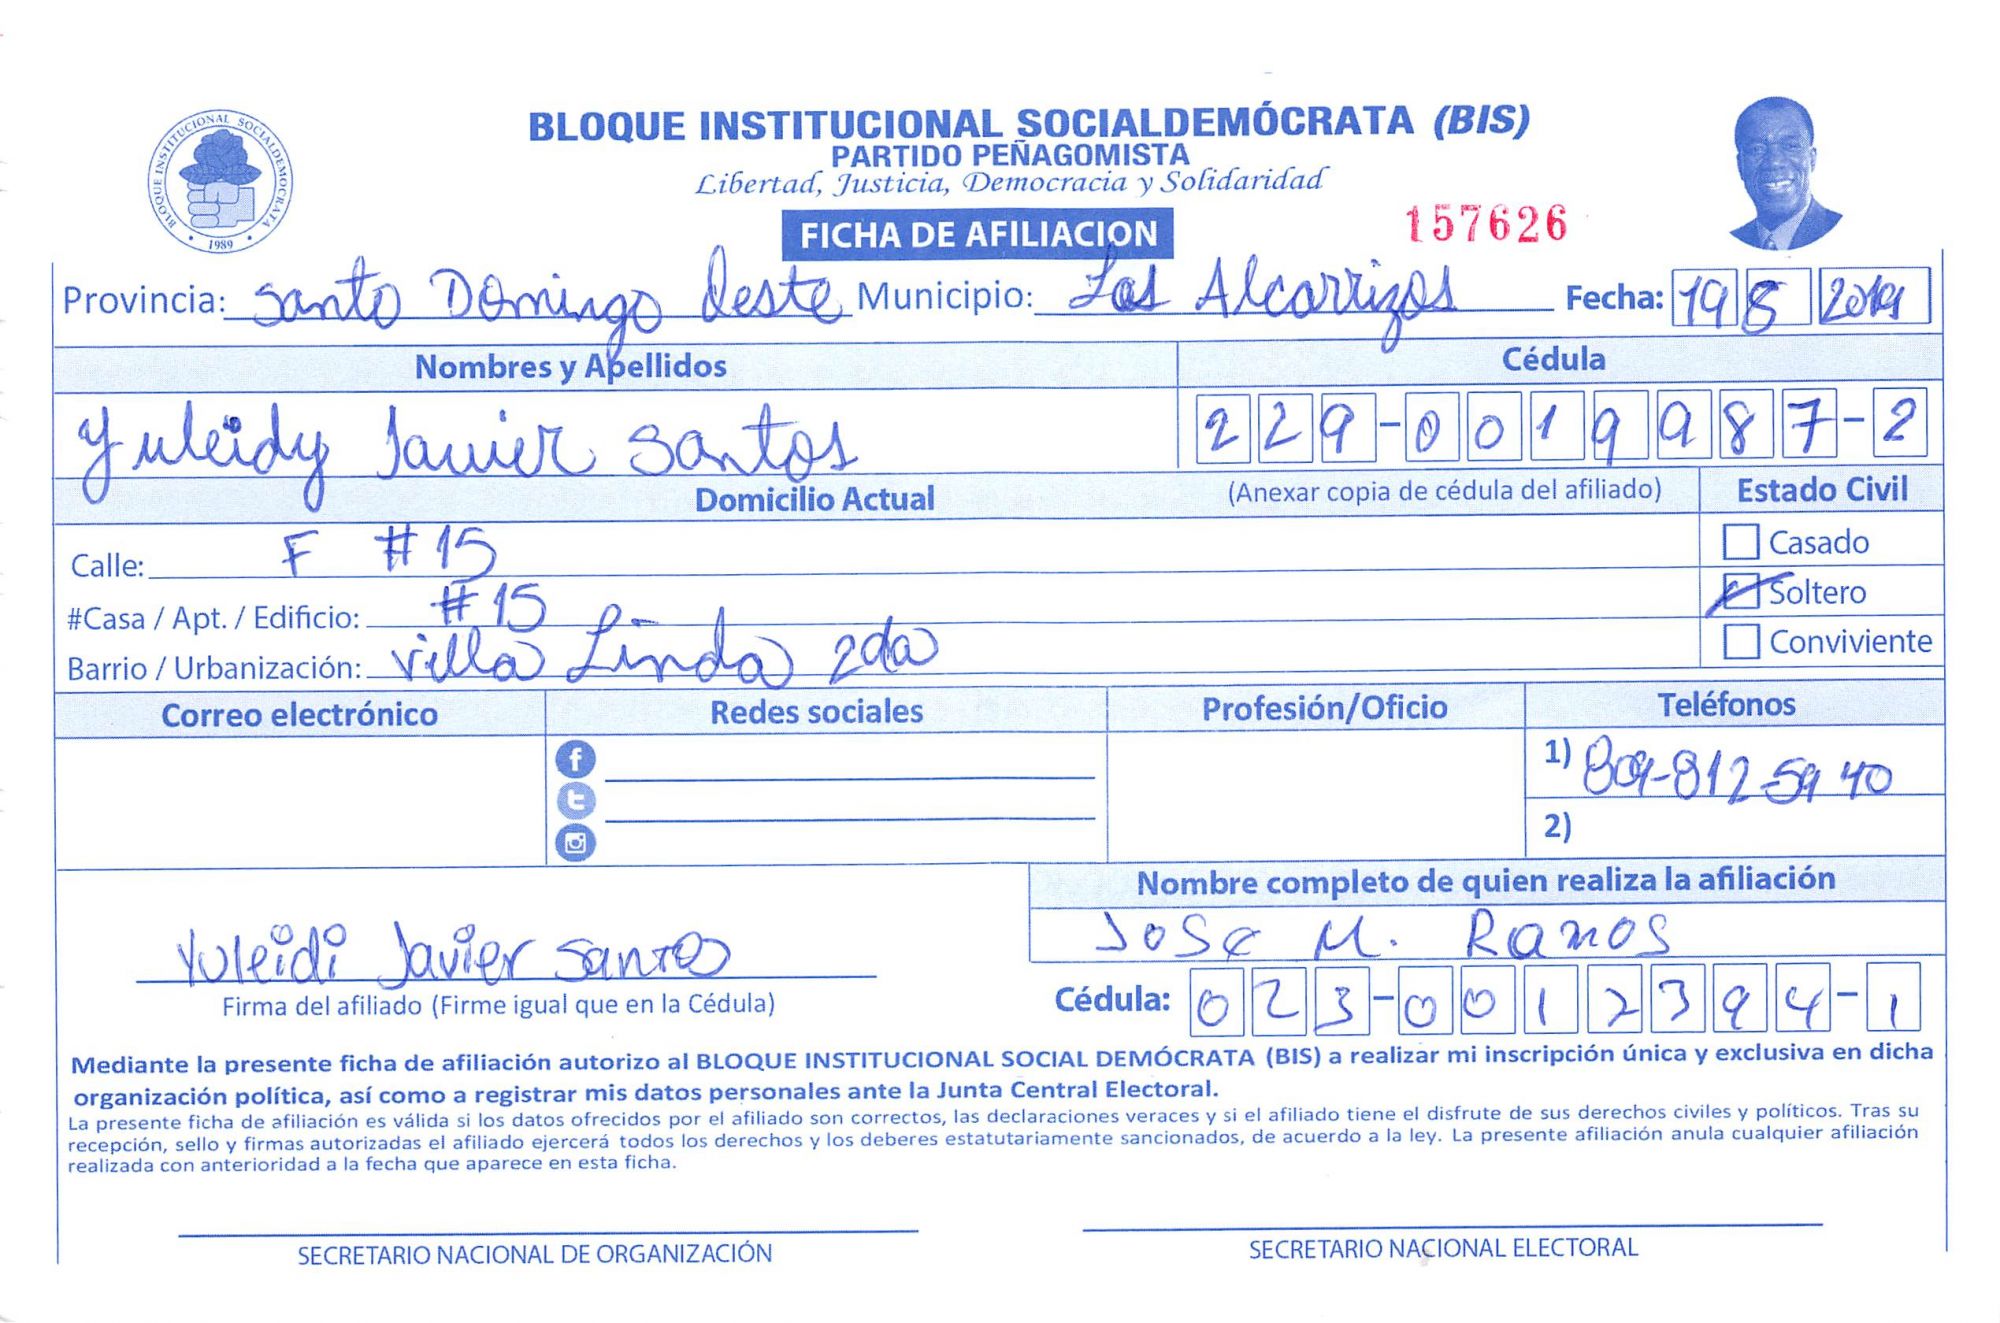 BLOQUE INSTITUCIONAL SOCIALDEMOCRATA
1989
BLOQUE INSTITUCIONAL SOCIALDEMÓCRATA (BIS)
PARTIDO PEÑAGOMISTA
Libertad, Justicia, Democracia y Solidaridad
FICHA DE AFILIACION
157626
Provincia: Santo Domingo Oeste Municipio: Los Alcarrizos Fecha: 19 8 2019
Nombres y Apellidos Cédula
Yuleidy Javier Santos 229-0019987-2
Domicilio Actual (Anexar copia de cédula del afiliado) Estado Civil
Calle: F #15 Casado
#Casa / Apt. / Edificio: #15 Soltero
Barrio / Urbanización: Villa Linda 2da Conviviente
Correo electrónico Redes sociales Profesión/Oficio Teléfonos
1) 809-812-5940
2)
Nombre completo de quien realiza la afiliación
Jose M. Ramos
Yuleidi Javier Santos
Firma del afiliado (Firme igual que en la Cédula) Cédula: 023-0012394-1
Mediante la presente ficha de afiliación autorizo al BLOQUE INSTITUCIONAL SOCIAL DEMÓCRATA (BIS) a realizar mi inscripción única y exclusiva en dicha
organización política, así como a registrar mis datos personales ante la Junta Central Electoral.
La presente ficha de afiliación es válida si los datos ofrecidos por el afiliado son correctos, las declaraciones veraces y si el afiliado tiene el disfrute de sus derechos civiles y políticos. Tras su
recepción, sello y firmas autorizadas el afiliado ejercerá todos los derechos y los deberes estatutariamente sancionados, de acuerdo a la ley. La presente afiliación anula cualquier afiliación
realizada con anterioridad a la fecha que aparece en esta ficha.
SECRETARIO NACIONAL DE ORGANIZACIÓN SECRETARIO NACIONAL ELECTORAL